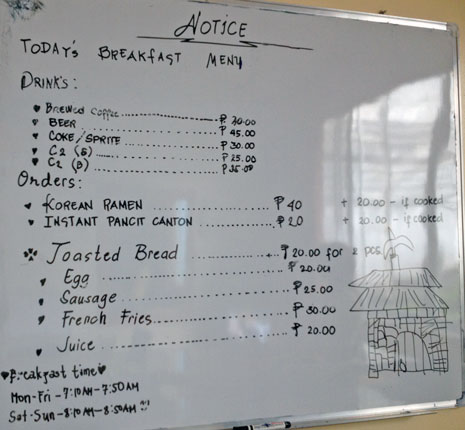 NOTICE
TODAY'S BREAKFAST MENU
DRINK'S:
BREWED COFFEE ₱ 20.00
BEER ₱ 45.00
COKE/SPRITE ₱ 30.00
C2 (S) ₱ 25.00
C2 (B) ₱ 35.00
Orders:
KOREAN RAMEN ₱ 40 + 20.00 - if cooked
INSTANT PANCIT CANTON ₱ 20 + 20.00 - if cooked
Toasted Bread ₱ 20.00 for 2 pcs.
Egg ₱ 20.00
Sausage ₱ 25.00
French Fries ₱ 30.00
Juice ₱ 20.00
Breakfast time
Mon-Fri - 7:10AM - 7:50AM
Sat-Sun - 8:10AM - 8:50AM !!!